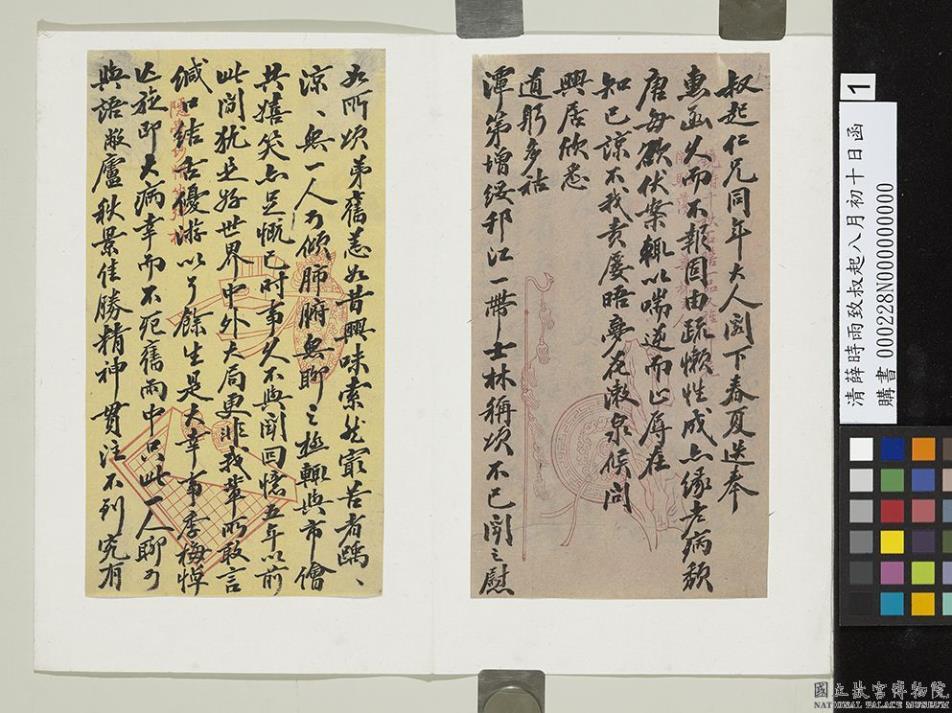 叔起仁兄同年大人閣下春夏迭奉
惠函久而不報固由疏懶性成亦緣老病頹
唐每欲伏案輒以喘逆而止辱在
知己諒不我責屢晤夢花漱泉候問
興居欣悉
道躬多祜
潭第增綏邗江一帶士林稱頌不已聞之慰
如所頌弟舊恙如昔興味索然最苦者踽、
涼、無一人可傾肺腑無聊之極輒與市儈
共嬉笑亦足慨已時事久不與聞回憶五年以前
此間猶是好世界中外大局更非我輩所敢言
緘口結舌優游以了餘生是大幸事季梅悼
亡旋即大病幸而不死舊雨中只此一人聊可
與語敝廬秋景佳勝精神貫注不到究有
清薛時雨致叔起八月初十日函
購書 000228N000000000
1
國立故宮博物院
NATIONAL PALACE MUSEUM